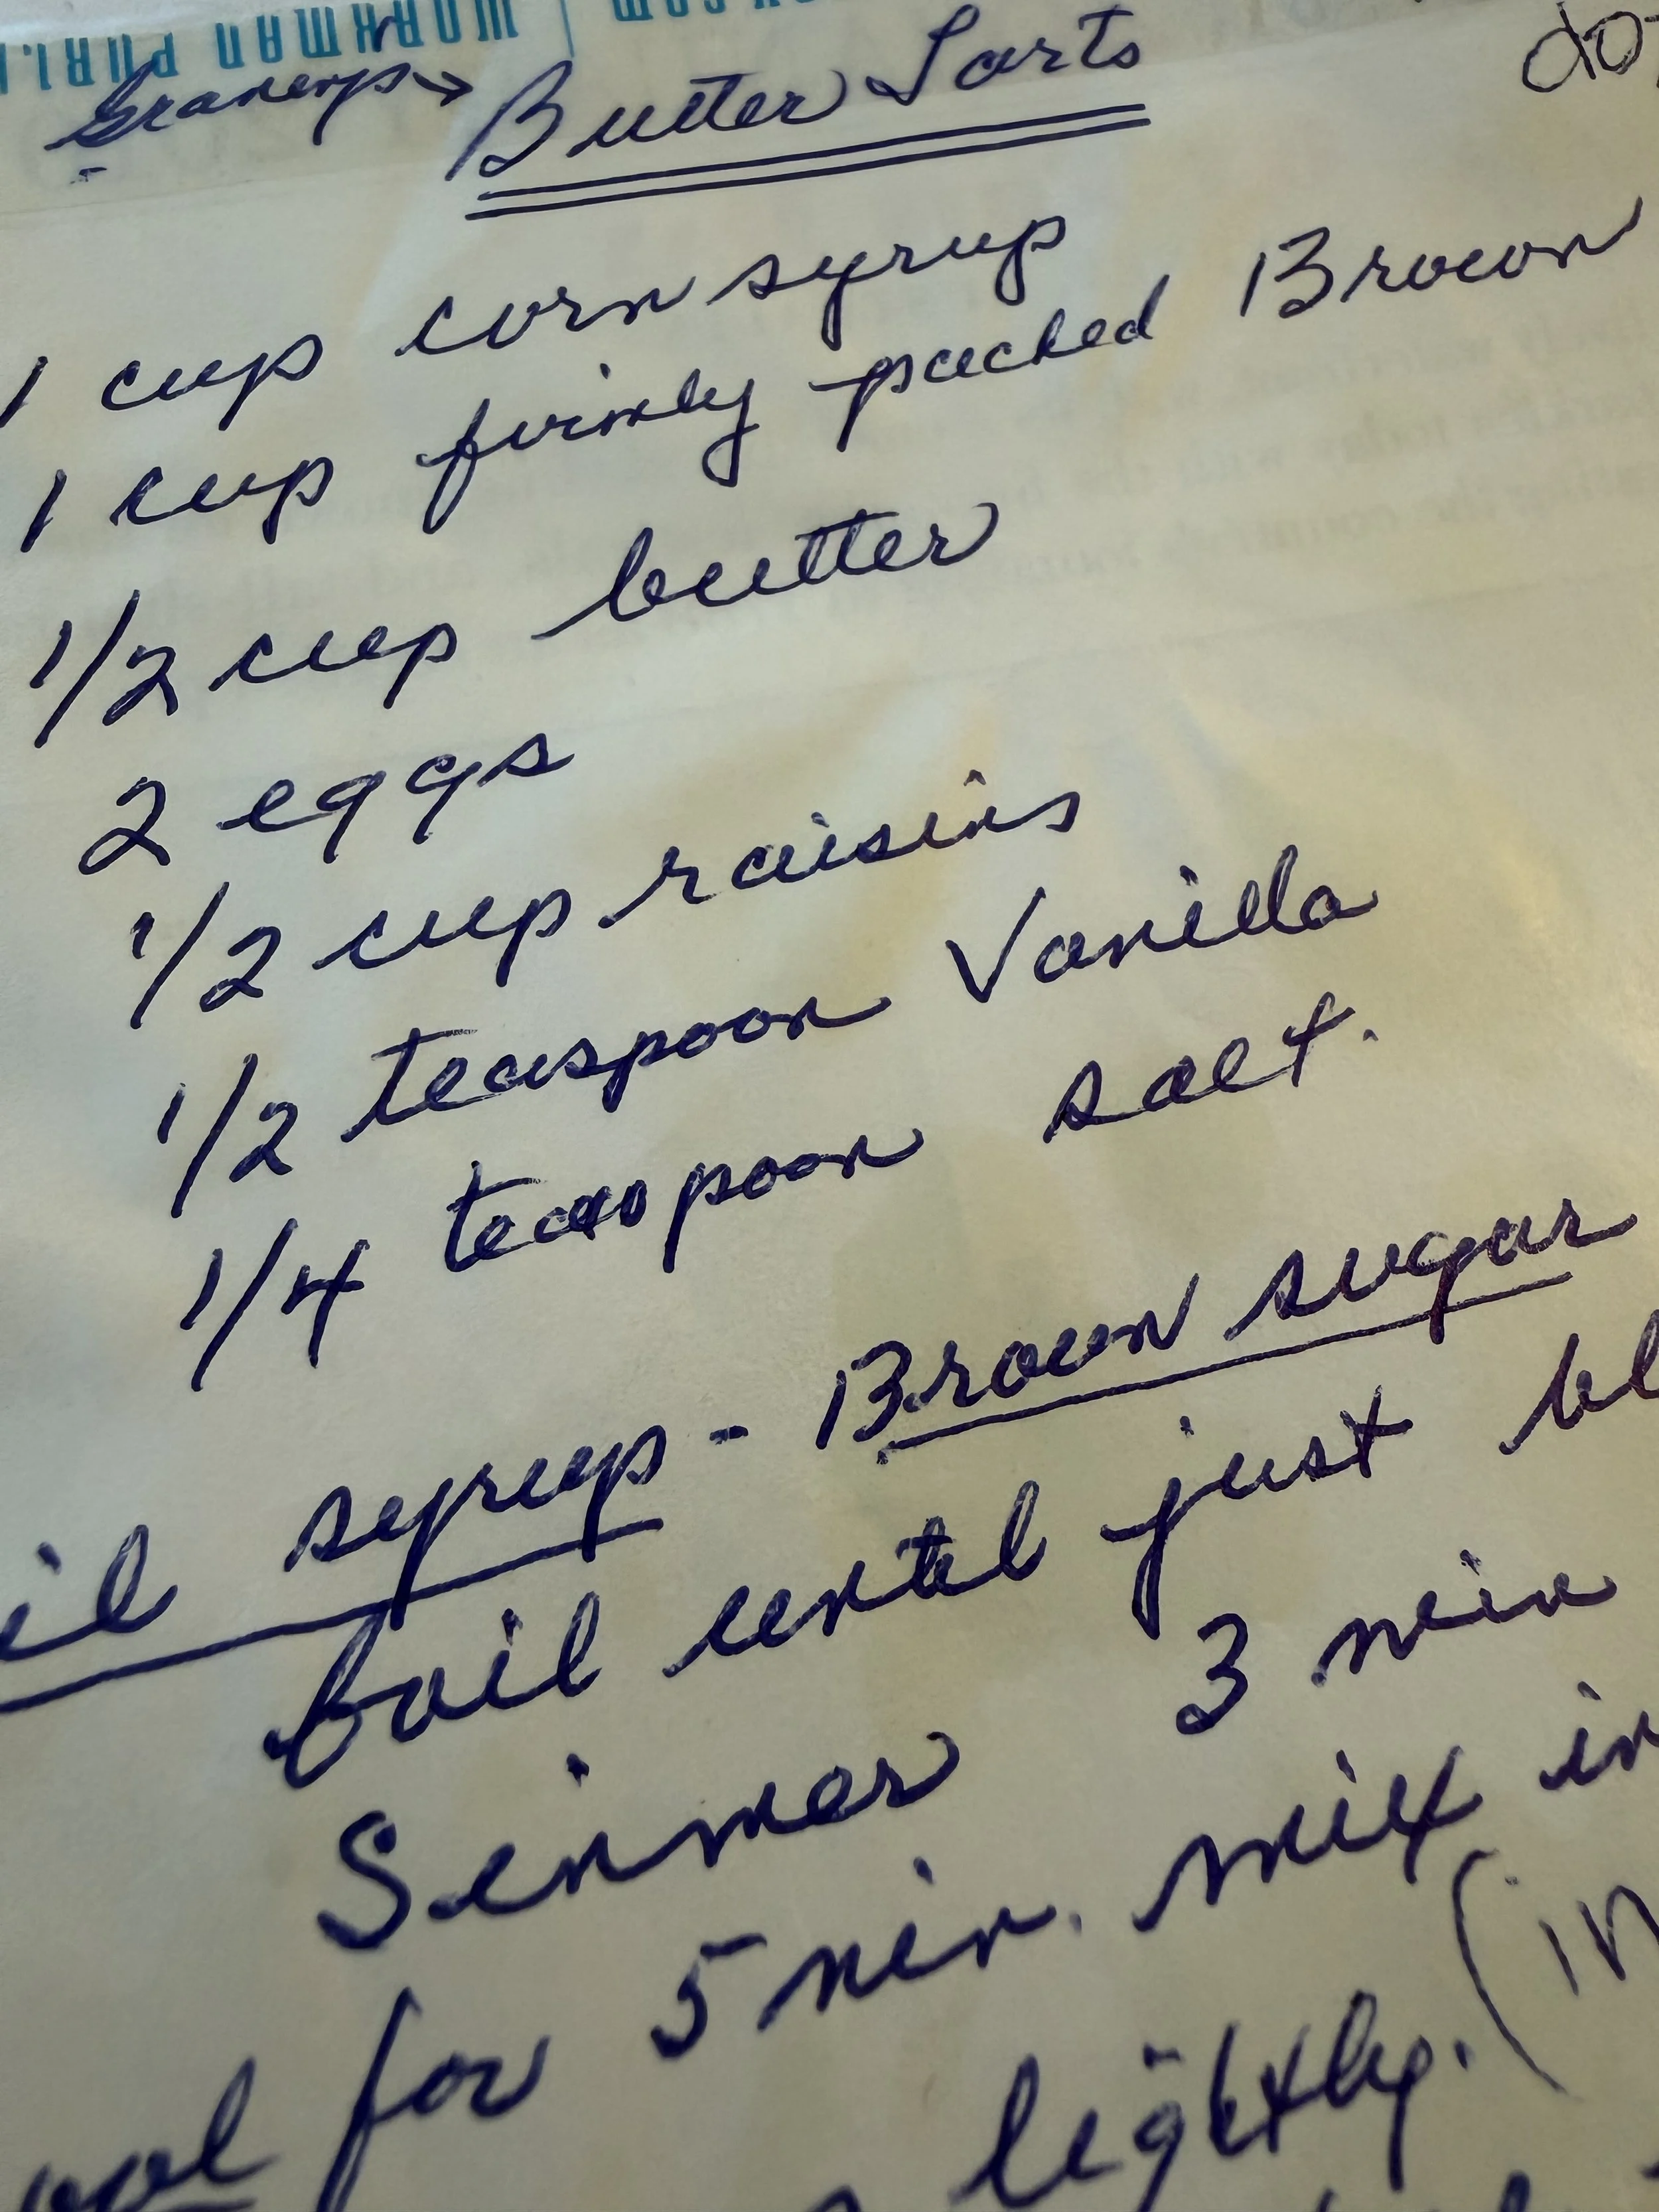 Butter Tarts
1 cup corn syrup
1 cup firmly packed Brown
1/2 cup butter
2 eggs
1/2 cup raisins
1/2 teaspoon Vanilla
1/4 teaspoon salt.
il syrup - Brown sugar
boil until just bl
Simmer 3 min
ool for 5 min. mix in
lightly. (in